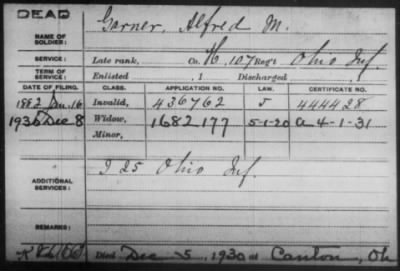 DEAD
NAME OF SOLDIER: Garner, Alfred M.
SERVICE: Late rank, Co. K, 107 Reg't Ohio Inf
TERM OF SERVICE: Enlisted , 1 Discharged
DATE OF FILING. CLASS. APPLICATION NO. LAW. CERTIFICATE NO.
1882 Jan. 16 Invalid, 436762 J 444428
1930 Dec 8 Widow, 1682177 5-1-20 a 4-1-31
Minor,
ADDITIONAL SERVICES: I 25 Ohio Inf.
REMARKS:
Died Dec 5, 1930 at Canton, Oh